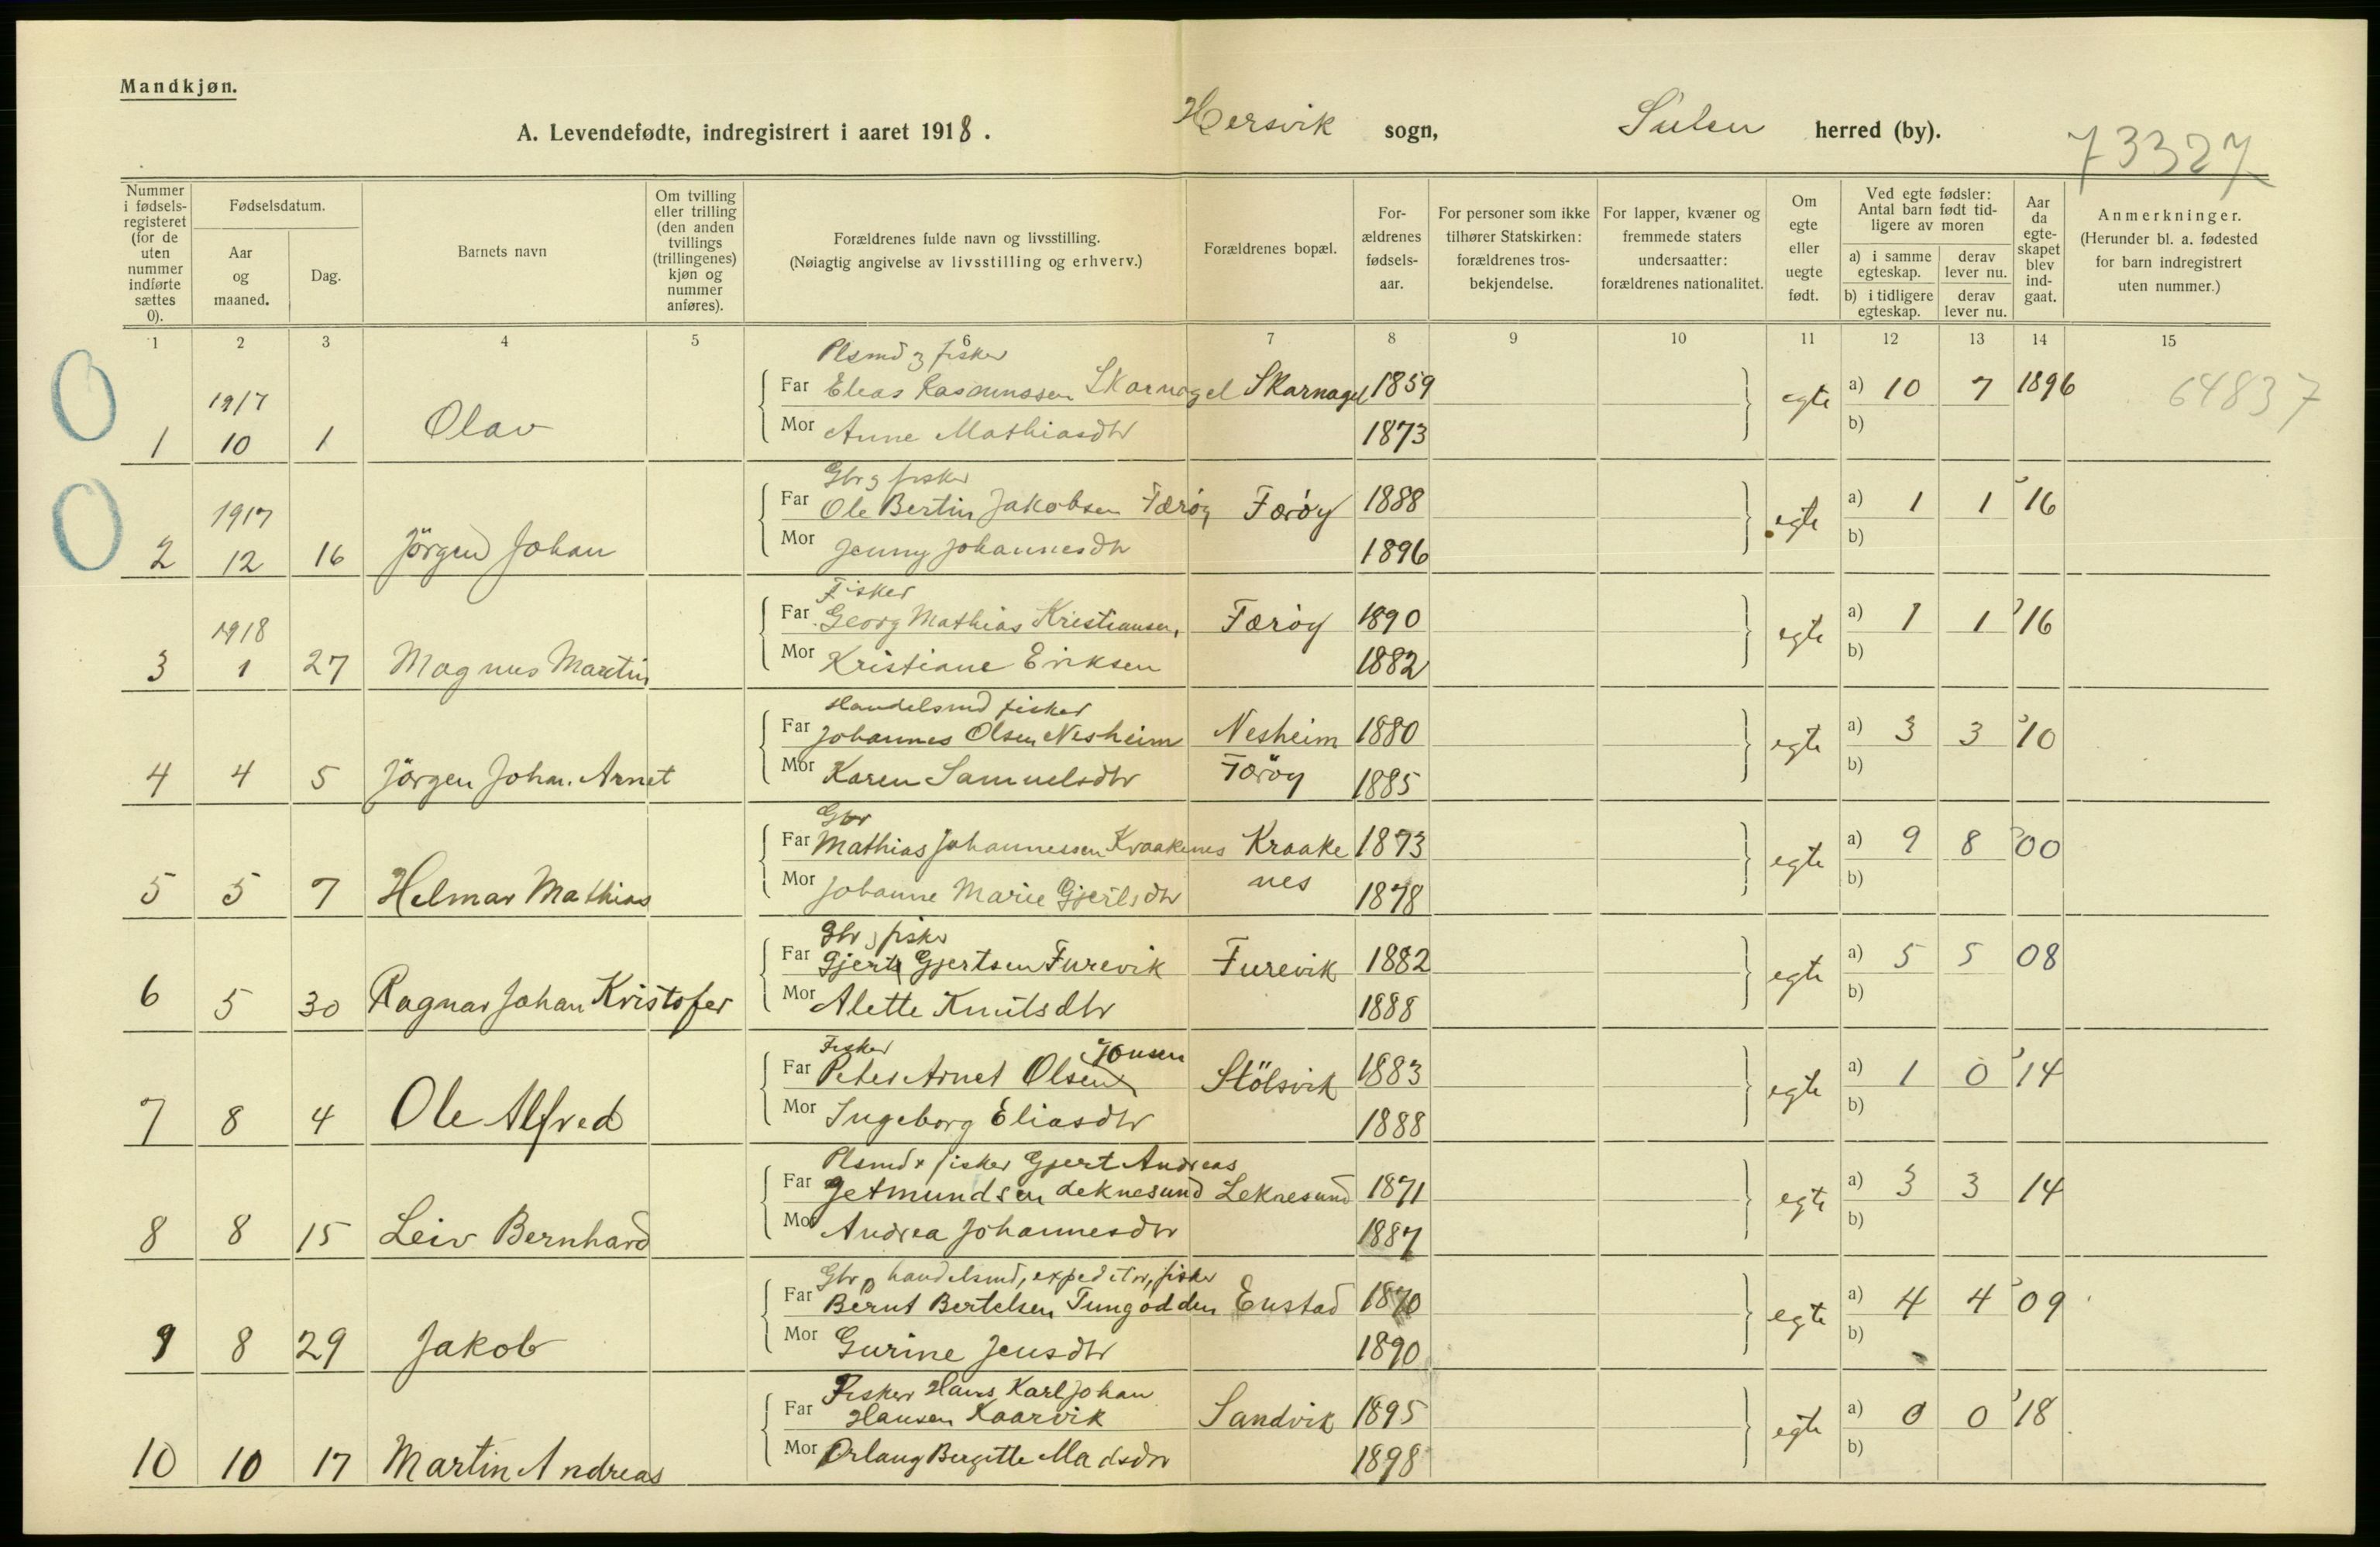 Mandkjøn.
A. Levendefødte, indregistrert i aaret 1918. Hersvik sogn, Sulen herred (by).
73327
Nummer i fødsels-registeret (for de uten nummer indførte sættes 0).
Fødselsdatum.
Aar og maaned.
Dag.
Barnets navn
Om tvilling eller trilling (den anden tvillings (trillingenes) kjøn og nummer anføres).
Forældrenes fulde navn og livsstilling.
(Nøiagtig angivelse av livsstilling og erhverv.)
Forældrenes bopæl.
For-ældrenes fødsels-aar.
For personer som ikke tilhører Statskirken: forældrenes tros-bekjendelse.
For lapper, kvæner og fremmede staters undersaatter: forældrenes nationalitet.
Om egte eller uegte født.
Ved egte fødsler: Antal barn født tid-ligere av moren
a) i samme egteskap.
derav lever nu.
b) i tidligere egteskap.
derav lever nu.
Aar da egte-skapet blev ind-gaat.
Anmerkninger.
(Herunder bl. a. fødested for barn indregistrert uten nummer.)
1 2 3 4 5 6 7 8 9 10 11 12 13 14 15
Plsmd og fisker
0 1917 Far Elias Rasmussen Skarnagel Skarnagel 1859 egte a) 10 7 1896 64837
1 10 1 Olav Mor Anne Mathiasdtr 1873 b)
Gbr og fisker
0 1917 Far Ole Bertin Jakobsen Færöy Færöy 1888 egte a) 1 1 '16
2 12 16 Jörgen Johan Mor Jenny Johannesdtr 1896 b)
Fisker
1918 Far Georg Mathias Kristiansen, Færöy 1890 egte a) 1 1 '16
3 1 27 Magnus Martin Mor Kristiane Eriksen 1882 b)
Handelsmd fisker
Far Johannes Olsen Nesheim Nesheim 1880 egte a) 3 3 '10
4 4 5 Jörgen Johan. Arnet Mor Karen Samuelsdtr Færöy 1885 b)
Gbr
Far Mathias Johannessen Kraakenes Kraake 1873 egte a) 9 8 '00
5 5 7 Helmar Mathias Mor Johanne Marie Gjertsdtr nes 1878 b)
Gbr og fisker
Far Gjert Gjertsen Furevik Furevik 1882 egte a) 5 5 08
6 5 30 Ragnar Johan Kristofer Mor Alette Knutsdtr 1888 b)
Fisker Jonsen
Far Peter Arnet Olsen Stölsvik 1883 egte a) 1 0 '14
7 8 4 Ole Alfred Mor Ingeborg Eliasdtr 1888 b)
Plsmd + fisker Gjert Andreas
Far Getmundsen Leknesund Leknesund 1871 egte a) 3 3 14
8 8 15 Leiv Bernhard Mor Andrea Johannesdtr 1887 b)
Gbr og handelsmd, expeditör, fisker
Far Bernt Bertelsen Tungodden Enstad 1870 egte a) 4 4 '09
9 8 29 Jakob Mor Gurine Jensdtr 1890 b)
Fisker Hans Karl Johan
Far Hansen Kaarvik Sandvik 1895 egte a) 0 0 '18
10 10 17 Martin Andreas Mor Orlaug Bergitte Madsdtr 1898 b)